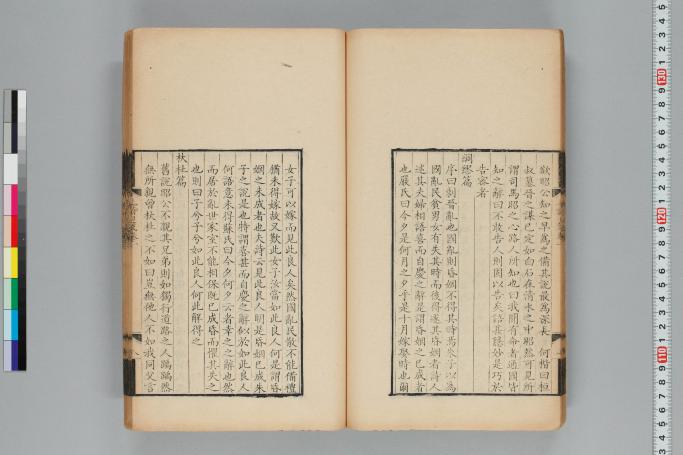 欲昭公知之早為之備其說最為深長　何楷曰桓
叔篡晉之謀已定如白石在清水之中昭然可見所
謂司馬昭之心路人所知也曰我聞有命者通國皆
知之辭曰不敢告人則因以告矣語其隱妙是巧於
告密者
綢繆篇
序曰刺晉亂也國亂則昏姻不得其時焉朱子以為
國亂民貧男女有失其時而後得遂其昏姻者詩人
述其夫婦相語喜而自慶之辭是謂昏姻之已成者
也嚴氏曰今夕是何月之夕乎是十月嫁娶時也爾
女子可以嫁而見此良人矣然國亂民散不能備禮
猶未得嫁故又歎此女子汝當如此良人何是謂昏
姻之未成者也夫詩云見此良人明是昏姻已成朱
子之說是也特謂喜甚而自慶之辭似於如此良人
何語意未得蘇氏曰今夕何夕云者幸之之辭也然
而居於亂世家室不能相保既已成昏而懼其失之
也則曰子兮子兮如此良人何此解得之
杕杜篇
舊說昭公不親其兄弟則如獨行道路之人踽踽然
無所親曾杕杜之不如曰豈無他人不如我同父言